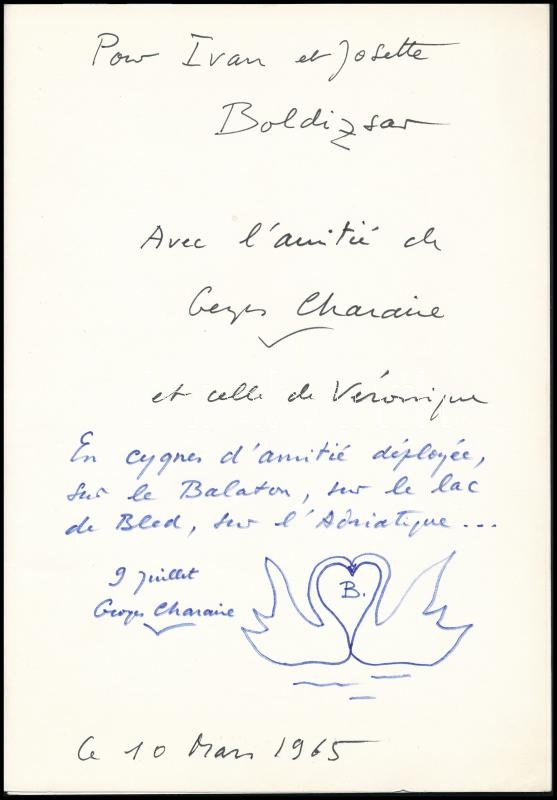 Pour Ivan et Josette
Boldizsar
Avec l'amitié de
Georges Charaire
et celle de Véronique
En cygnes d'amitié déployée,
sur le Balaton, sur le lac
de Bled, sur l'Adriatique...
9 juillet
Georges Charaire
B.
Le 10 Mars 1965